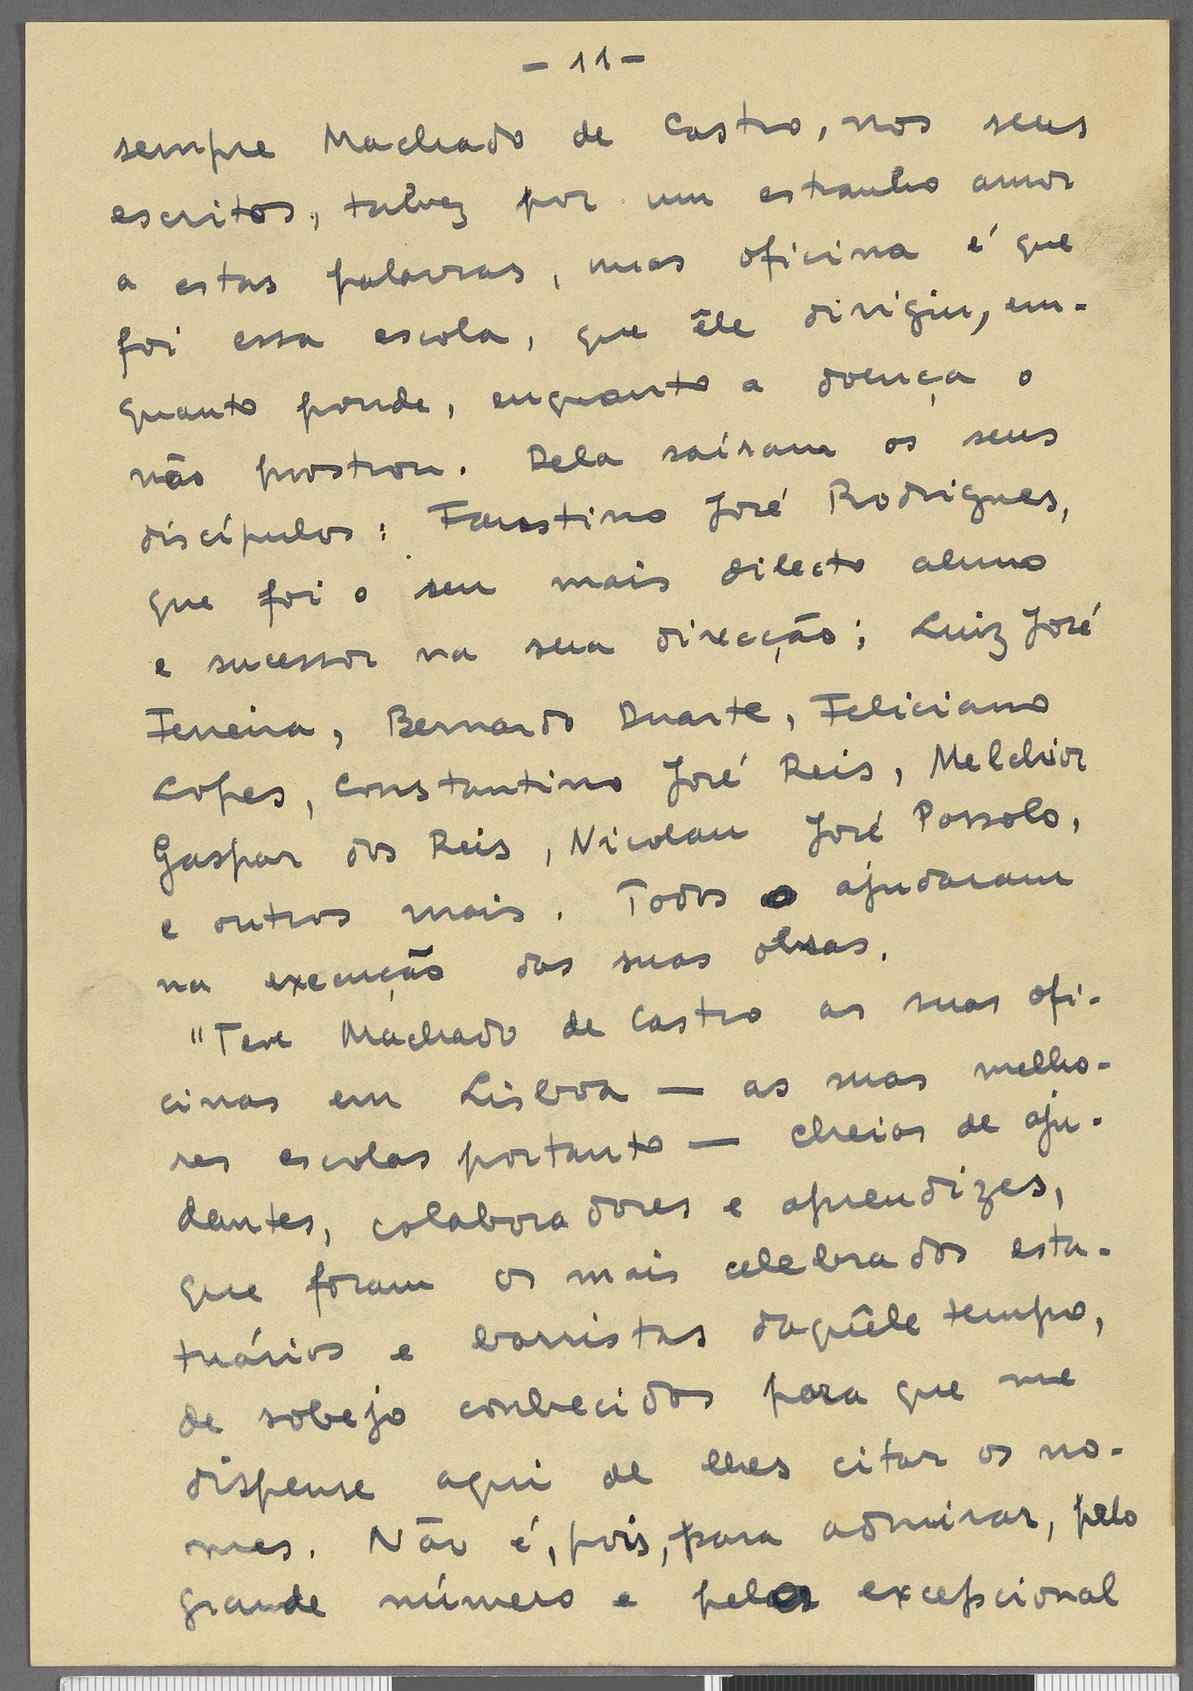 - 11 -
sempre Machado de Castro, nos seus
escritos, talvez por um estranho amor
a estas palavras, mas oficina é que
foi essa escola, que êle dirigiu, em-
quanto poude, enquanto a doença o
não prostrou. Dela saíram os seus
discípulos: Faustino José Rodrigues,
que foi o seu mais dilecto aluno
e sucessor na sua direcção; Luiz José
Ferreira, Bernardo Duarte, Feliciano
Lopes, Constantino José Reis, Melchior
Gaspar dos Reis, Nicolau José Possolo,
e outros mais. Todos o ajudaram
na execução das suas obras.
"Teve Machado de Castro as suas ofi-
cinas em Lisboa — as suas melho-
res escolas portanto — cheias de aju-
dantes, colaboradores e aprendizes,
que foram os mais celebrados esta-
tuários e barristas daquêle tempo,
de sobejo conhecidos para que me
dispense aqui de lhes citar os no-
mes. Não é, pois, para admirar, pelo
grande número e pela excepcional